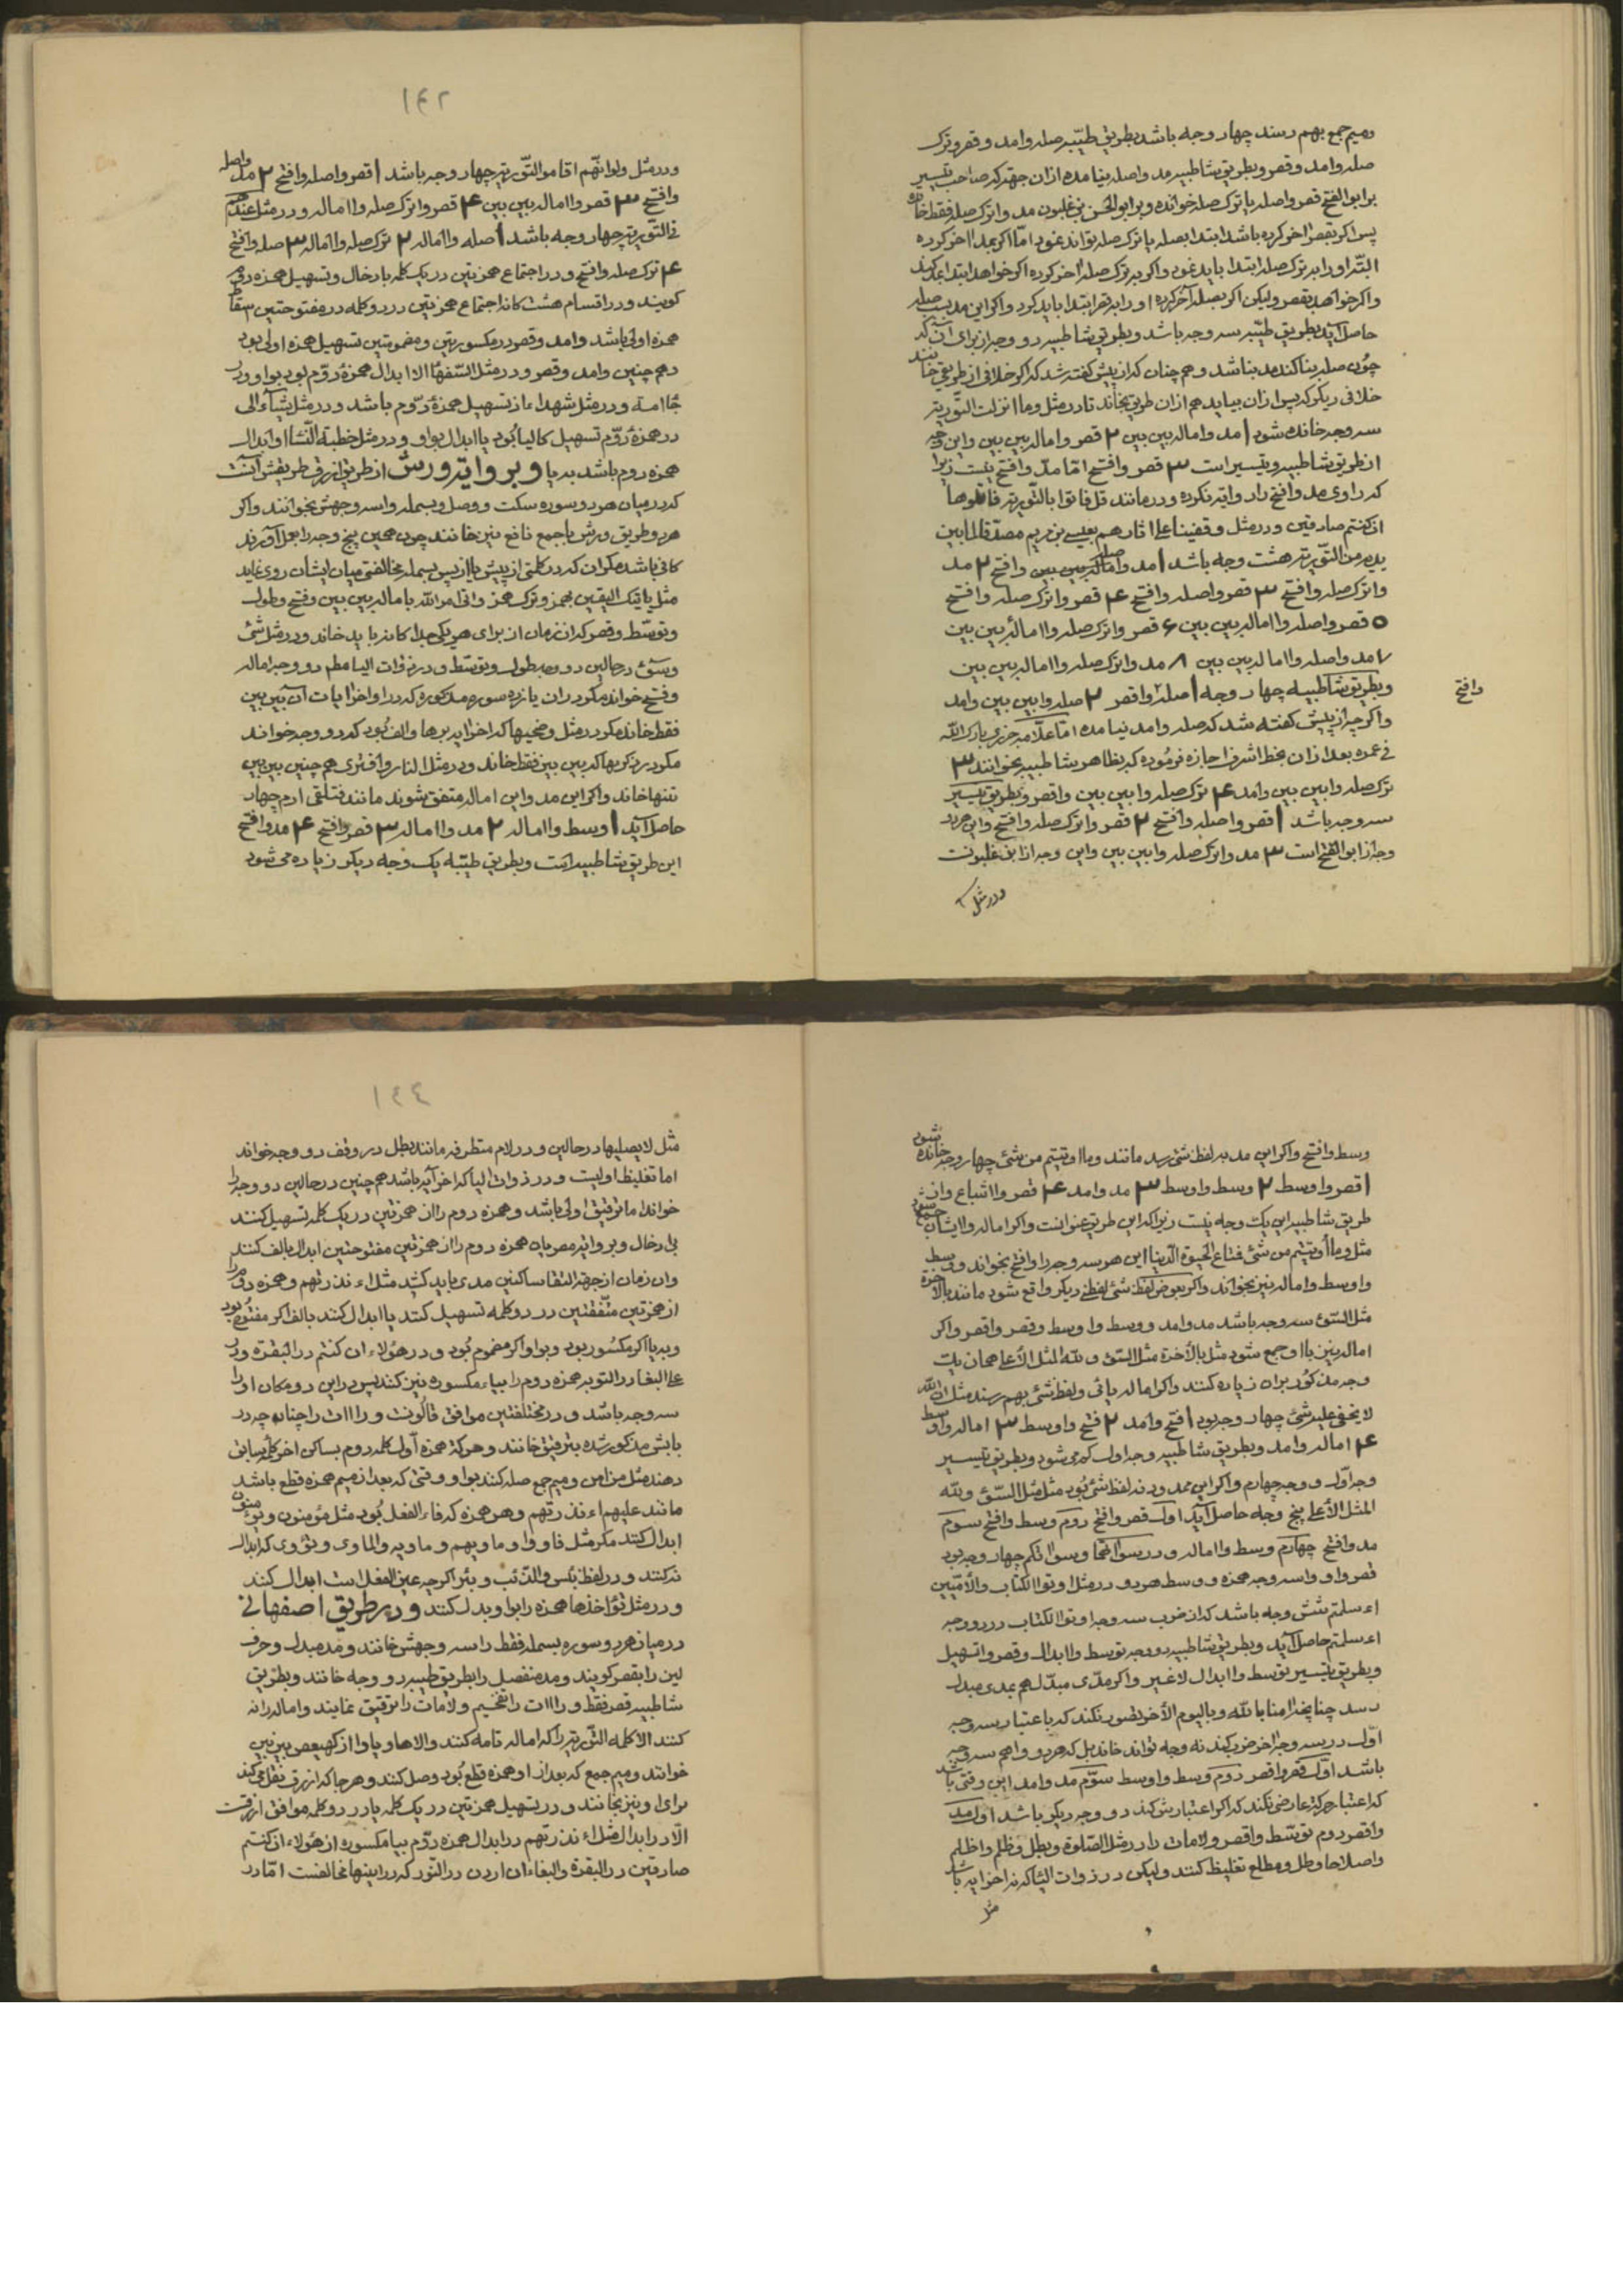 ومیم جمع بهم رسند چهار وجه باشد بطریق طیّبه صله وامد وقصر وترک
صله وامد وقصر وبطریق شاطبیه مد واصله نیامده ازان جهة که صاحب تیسیر
بر ابو الفتح قصر واصله یا ترک صله خوانده وبر ابو الحسن بن غلبون مد واترک صله فقط خوانده
پس اکر بقصر اخر کرده باشد ابتدا بصله یا ترک صله تواند نمود امّا اکر بمد اخر کرده
البتّه اورا بر ترک صله ابتدا باید نمود واکر بر ترک صله اخر کرده اکر خواهد ابتدا بمد کند
واکر خواهد بقصر ولیکن اکر بصله آخر کرده اورا بر قصر ابتدا باید کرد واکر این مد بسبب صله
حاصل آید بطریق طیّبه سه وجه باشد وبطریق شاطبیه دو وجه از برای آن که
چون صله بنا کند مد بناشد وهم چنان که از پیش کفته شد که اکر خلافی از طریقی خوانند
خلافی دیکر که پس ازان بیاید هم ازان طریق بخواند تا در مثل وما انزلت التّوریة
سه وجه خوانده شود ۱ مد وامالۀ بین بین ۲ قصر وامالۀ بین بین واین دو وجه
از طریق شاطبیه وتیسیر است ۳ قصر وافتح امّا مدّ وافتح نیست زیرا
که راوی مد وافتح را روایة نکرده ودر مانند قل فاتوا بالتّوریة فاتلوها
ان کنتم صادقین ودر مثل وقفینا علی اثارهم بعیسی بن مریم مصدّقا لما بین
یدیه من التّوریة هشت وجه باشد ۱ مد واصله وامالۀ بین بین وافتح ۲ مد
واترک صله وافتح ۳ قصر واصله وافتح ۴ قصر واترک صله وافتح
۵ قصر واصله واامالۀ بین بین ۶ قصر واترک صله واامالۀ بین بین
۷ مد واصله واامالۀ بین بین ۸ مد واترک صله واامالۀ بین بین
وبطریق شاطبیه چهار وجه ۱ صله واقصر ۲ صله وابین بین وامد
وافتح
واکر چه از پیش کفته شد که صله وامد نیامده امّا علّامه جزری بارک اللّه
فی عمره بعد ازان بخط اشرف اجازه فرموده که بظاهر شاطبیه بخوانند ۳
ترک صله وابین بین وامد ۴ ترک صله وابین بین واقصر وبطریق تیسیر
سه وجه باشد ۱ قصر واصله وافتح ۲ قصر واترک صله وافتح واین هر دو
وجه از ابو الفتح است ۳ مد واترک صله وابین بین واین وجه از ابن غلبونست
ودر مثل
۱۴۲
ودر مثل ولو انّهم اقاموا التّوریة چهار وجه باشد ۱ قصر واصله وافتح ۲ مد واصله
وافتح ۳ قصر واامالۀ بین بین ۴ قصر واترک صله واامالۀ ودر مثل عندهم
فی التّوریة چهار وجه باشد ۱ صله واامالۀ ۲ ترک صله واامالۀ ۳ صله وافتح
۴ ترک صله وافتح ودر اجتماع همزتین در یک کلمه بادخال وتسهیل همزه دوم
کویند ودر اقسام هشت کانه اجتماع همزتین در دو کلمه در مفتوحتین سقاط
همزه اولی باشد وامد وقصر ودر مکسورتین ومضمومتین تسهیل همزه اولی بود
وهم چنین وامد وقصر ودر مثل السّفهآء الا ابدال همزۀ دوّم بود بواو ودر
جاء امة ودر مثل شهداء اذ تسهیل همزۀ دوّم باشد ودر مثل یشآء الی
در همزۀ دوّم تسهیل کالیا بود یا ابدال بواو ودر مثل خطبة النّسآء او ابدال
همزه دوم باشد به یا وبروایة ورش از طریق ازرق طریقش آنست
که در میان هر دو سوره سکت ووصل وبسمله واسه وجهش بخوانند واکر
هر دو طریق ورش با جمع نافع نیز خوانند چون همین پنج وجه را بعمل آورند
کافی باشد مکر آن که در کلمتی از پیش یا از پس بسمله مخالفتی میان ایشان روی نماید
مثل یاتیک الیقین بهمز وترک همز واتی امر اللّه بامالۀ بین بین وفتح وطول
وتوسّط وقصر که آن زمان از برای هر یکی جداکانه باید خواند ودر مثل شئ
وسوء در حالین دو وجه طول وتوسّط ودر ذوات الیا مطم دو وجه اماله
وفتح خواند مکر در آن یازده سوره مذکوره که در اواخر آیات آن بین بین
فقط خواند مکر در مثل وضحیها که اخر آیه بر ها والف بود که دو وجه خواند
مکر در ذکریها که بین بین فقط خواند ودر مثل النار وافتری هم چنین بین بین
تنها خواند واکر این مد واین اماله متفق شوند مانند فتلقی ادم چهار
حاصل آید ۱ وسط واامالۀ ۲ مد واامالۀ ۳ قصر وافتح ۴ مد وافتح
این طریق شاطبیه است وبطریق طیّبه یک وجه دیکر زیاده می شود
وسط وافتح واکر این مد به لفظ شئ رسد مانند وما اوتیتم من شئ چهار وجه خوانده شود
۱ قصر واوسط ۲ وسط واوسط ۳ مد وامد ۴ قصر وااشباع واز
طریق شاطبیه این یک وجه نیست زیرا که این طریق عنوانست واکر اماله واایشان جمع شود
مثل وما اوتیتم من شئ فمتاع الحیوة الدّنیا این هر سه وجه را وافتح بخواند ووسط
واوسط واماله نیز بخواند واکر بعوض لفظ شئ لفظی دیکر واقع شود مانند بالاخرة
مثل السّوء سه وجه باشد مد وامد ووسط واوسط وقصر واقصر واکر
اماله نیز باو جمع شود مثل بالاخرة مثل السّوء وللّه المثل الاعلی همان یک
وجه مذکور بران زیاده کنند واکر اماله یائی ولفظ شئ بهم رسند مثل ان اللّه
لا یخفی علیه شئ چهار وجه بود ۱ فتح وامد ۲ فتح واوسط ۳ اماله واوسط
۴ اماله وامد وبطریق شاطبیه وجه اول کم می شود وبطریق تیسیر
وجه اوّل ووجه چهارم واکر این ممدود نه لفظ شئ بود مثل مثل السّوء وللّه
المثل الاعلی پنج وجه حاصل آید اول قصر وافتح دوم وسط وافتح سوم
مد وافتح چهارم وسط واامالۀ ودر سوآتهما وسوآتکم چهار وجه بود
قصر واو واسه وجه همزه ووسط هر دو ودر مثل اوتوا الکتاب والامّیّین
اءسلمتم شش وجه باشد که از ضرب سه وجه اوتوا الکتاب در دو وجه
اءسلمتم حاصل آید وبطریق شاطبیه دو وجه توسط واابدال وقصر واتسهیل
وبطریق تیسیر توسط واابدال لا غیر واکر مدّی مبدّل هم بمدی مبدل
رسد چنانچه امنا باللّه وبالیوم الاخر تصور نکند که باعتبار سه وجه
اوّل در سه وجه اخر ضرب کند نه وجه تواند خواند بل که هر دو واهم سه وجه
باشد اوّل قصر واقصر دوم وسط واوسط سوّم مد وامد این وقتی باشد
که اعتبار حرکة عارضی نکند که اکر اعتبارش کند دو وجه دیکر باشد اول مد
واقصر دوم توسّط واقصر ولامات را در مثل الصّلوة وبطل وظلم واظلم
واصلاحا وطل ومطلع تغلیظ کنند ولیکن در ذوات الیا که نه اخر آیه باشد
مثل
۱۴۴
مثل لا یصلیها در حالین ودر لام متطرفه مانند بطل در وقف دو وجه خواند
اما تغلیظ اولیست ودر ذوات الیا که اخر آیه باشد هم چنین در حالین دو وجه را
خواند اما ترقیق اولی باشد وهمزه دوم را از همزتین در یک کلمه تسهیل کنند
بی ادخال وبروایة مصریان همزه دوم را از همزتین مفتوحتین ابدال بالف کنند
وان زمان از جهة التقا ساکنین مدی باید کشید مثل اءنذرتهم وهمزه دوم را
از همزتین متّفقتین در دو کلمه تسهیل کنند یا ابدال کنند بالف اکر مفتوح بود
وبه یا اکر مکسور بود وبواو اکر مضموم بود ودر هؤلاء ان کنتم در البقرة ودر
علی البغا در النّور همزه دوم را بیاء مکسوره نیز کنند پس در این دو مکان او را
سه وجه باشد ودر مختلفتین موافق قالونست وراات را چنان چه در
بابش مذکور شده بترقیق خوانند وحرکة همزه اوّل کلمه دوم بساکن اخر کلمۀ سابق
دهند مثل من امن ومیم جمع صله کنند بواو وقتی که بعد از میم همزه قطع باشد
مانند علیهم اءنذرتهم وهر همزه که فاء الفعل بود مثل مؤمنون ویؤمنون
ابدال کنند مکر مثل فاووا وماویهم وماویه والماوی وتؤوی که ابدال
نه کنند ودر لفظ بئس والذّئب وبئر اکر چه عین الفعل است ابدال کنند
ودر مثل تؤاخذها همزه را بواو بدل کنند ودر طریق اصفهانی
در میان هر دو سوره بسمله فقط را سه وجهش خوانند ومد مبدل وحرف
لین را بقصر کویند ومد منفصل را بطریق طیبه دو وجه خوانند وبطریق
شاطبیه قصر فقط وراات را تفخیم ولامات را ترقیق نمایند واماله را نه
کنند الا کلمه التّوریة را که اماله تامه کنند والا ها ویا وا از کهیعص بین بین
خوانند ومیم جمع که بعد از او همزه قطع بود وصل کنند وهر جا که ازرق نقل می کند
برای او نیز بخوانند ودر تسهیل همزتین در یک کلمه یا در دو کلمه موافق ازرقست
الّا در ابدال مثل اءنذرتهم در ابدال همزه دوّم بیا مکسوره از هؤلاء ان کنتم
صادقین در البقرة والبغاء ان اردن در النّور که در اینها مخالفست امّا در